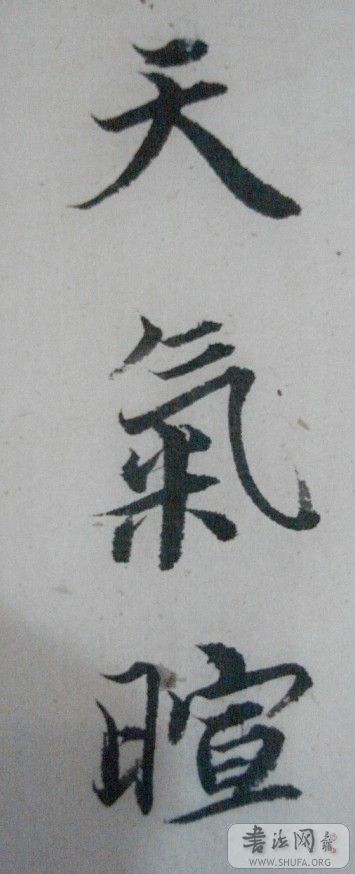 天氣暄
书法网
WWW.SHUFA.ORG